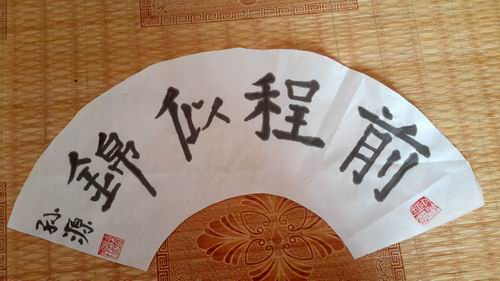 前程似錦
孙源